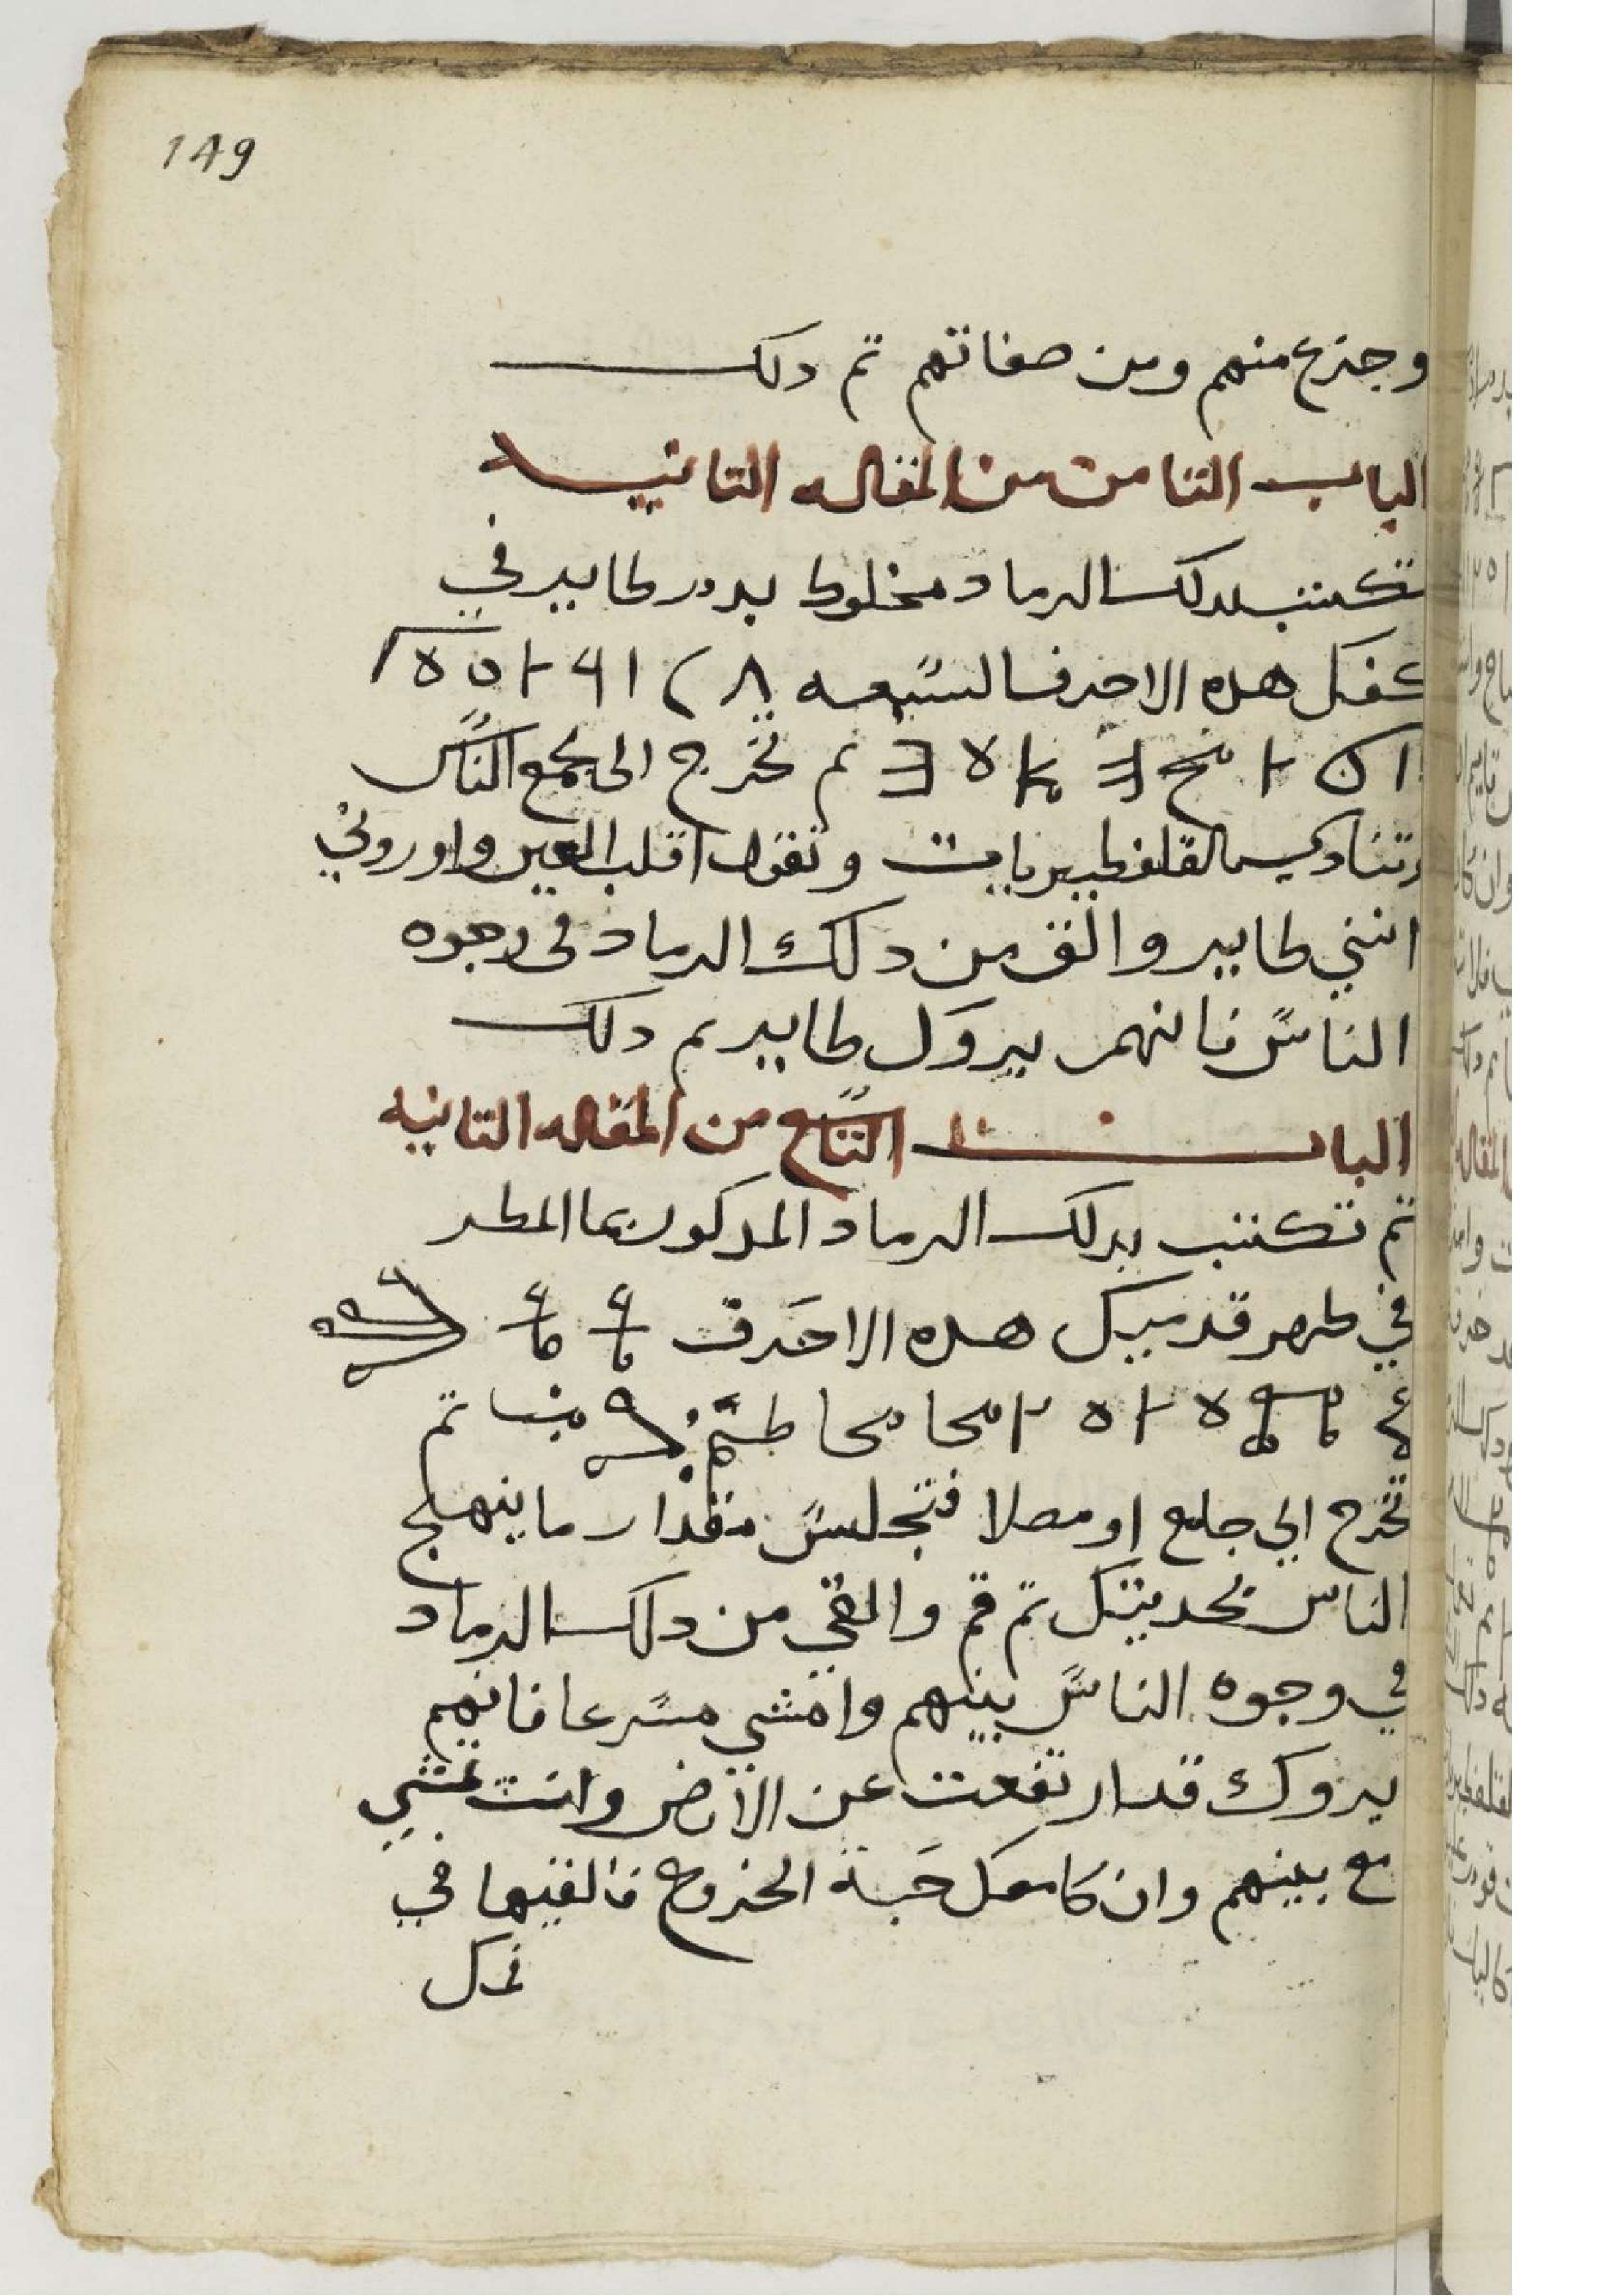 149
وجزع منهم ومن صفاتهم تم دلك
الباب التامن من المقاله التانيه
تكتب بدلك الرماد مخلوط بدم طاير في
كفك هده الاحرف السبعه
تم تخرج الى مجمع الناس
وتنادي يالقلفطيريات وتقول اقلب العين واوروني
انني طاير والق من دلك الرماد في وجوه
الناس فانهم يروك طاير تم دلك
الباب التاسع من المقاله التانيه
تم تكتب بدلك الرماد المدكور بما المطر
في ظهر قدميك هده الاحرف
تم
تخرج الي جامع او مصلا فتجلس مقدار ما ينهلج
الناس بحديتك تم قم والقي من دلك الرماد
في وجوه الناس بينهم وامشي مسرعا فانهم
يروك قد ارتفعت عن الارض وانت تمشي
مع بينهم وان كا معك حبة الخروع فالقيها في
فمك